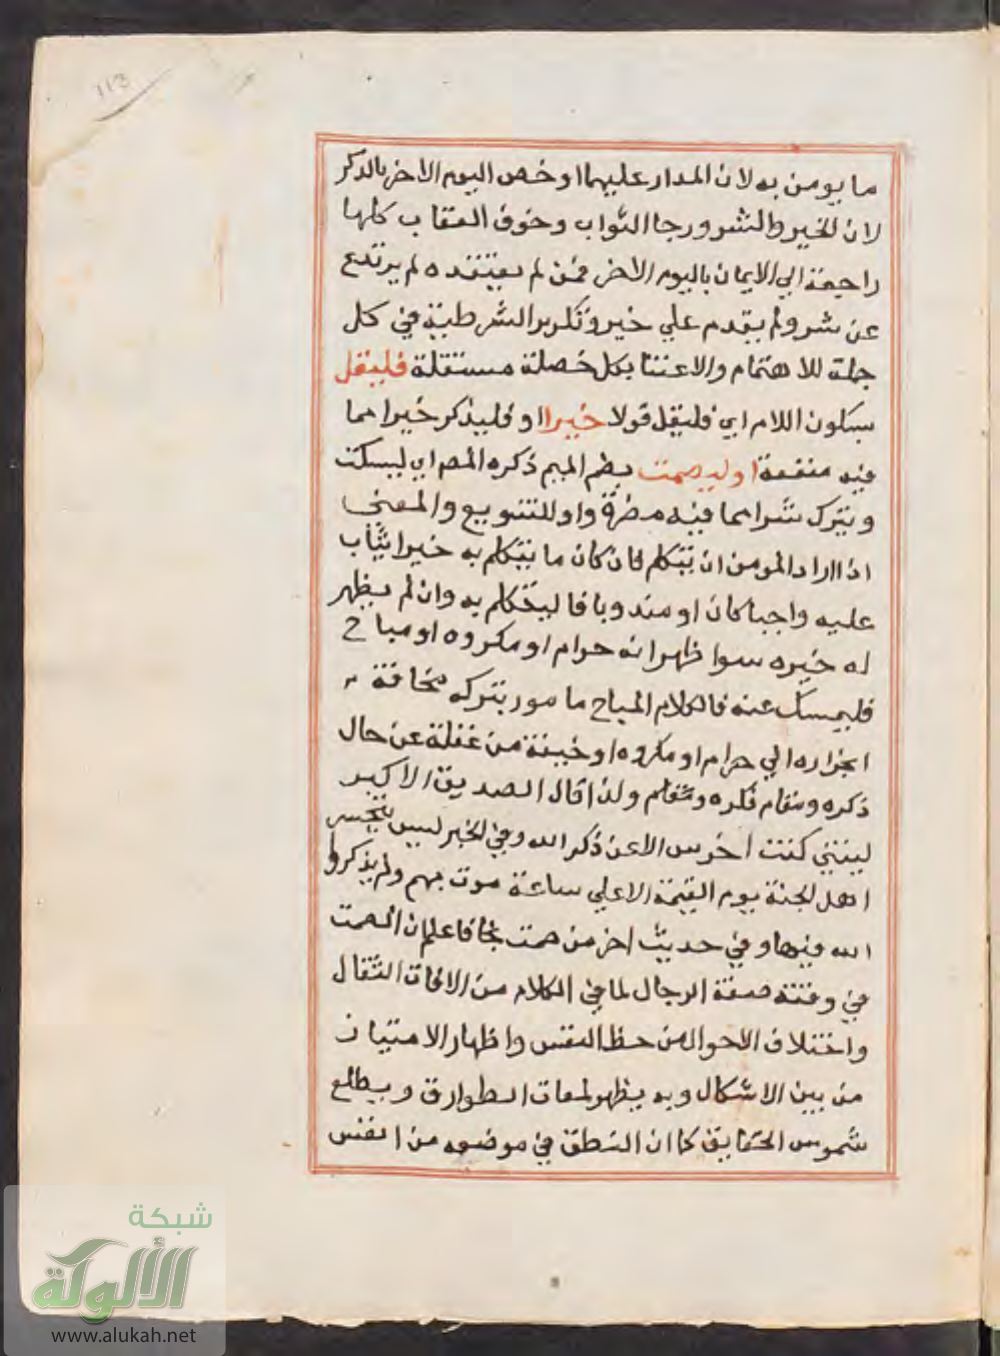 113
ما يومن به لان المدار عليهما او خص اليوم الاخر بالذكر
لان الخير والشر ورجا الثواب وخوف العقاب كلها
راجعة الي الايمان باليوم الاخر فمن لم يعتقده لم يرتدع
عن شر ولم يقدم علي خير وتكرير الشرطية في كل
جملة للاهتمام والاعتنا بكل خصلة مستقلة فليقل
بسكون اللام اي فليقل قولا خيرا او فليذكر خيرا مما
فيه منفعة او ليصمت بضم الميم ذكره المص اي ليسكت
ويترك شرا مما فيه مضرة واو للتنويع والمعني
اذا اراد المومن ان يتكلم فان كان ما يتكلم به خيرا يثاب
عليه واجبا كان او مندوبا فاليتكلم به وان لم يظهر
له خيره سوا ظهر انه حرام او مكروه او مباح
فليمسك عنه فالكلام المباح مامور بتركه مخافة
انجراره الي حرام او مكروه او خيفة من غفلة عن حال
ذكره ومقام فكره ولذا قال الصديق الاكبر
ليتني كنت اخرس الا عن ذكر الله وفي الخبر ليس يتحسر
اهل الجنة يوم القيمة الا علي ساعة موت بهم ولم يذكروا
الله فيها وفي حديث اخر من صمت نجا فاعلم ان الصمت
في وقته صفة الرجال لما في الكلام من الافات الثقال
واختلاف الاحوال من حظ النفس واظهار الامتيان
من بين الاشكال وبه يظهر لمعات الطوارق ويطلع
شموس الحقايق كما ان النطق في موضعه من انفس
شبكة
الألوكة
www.alukah.net